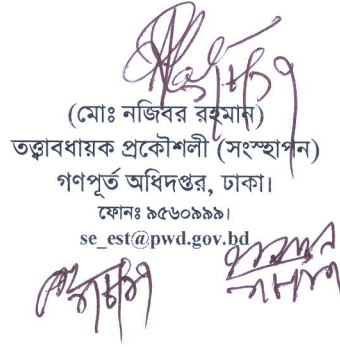 (মোঃ নজিবর রহমান)
তত্ত্বাবধায়ক প্রকৌশলী (সংস্হাপন)
গণপূর্ত অধিদপ্তর, ঢাকা।
ফোনঃ ৯৫৬০৯৯৯।
se_est@pwd.gov.bd